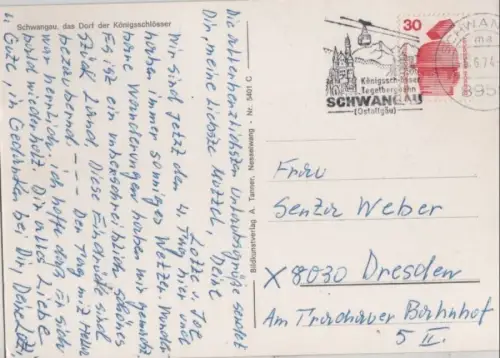 Schwangau, das Dorf der Königsschlösser
Die allerherzlichsten Urlaubsgrüße sendet
Dir, meine liebste Muttel, Deine
Lotte u. Joe
Wir sind jetzt den 4. Tag hier und
haben immer sonniges Wetter. Wunder-
bare Wanderungen haben wir gemacht.
Es ist ein unbeschreiblich schönes
Stück Land. Diese Eindrücke sind
bezaubernd. --- Der Tag mit
war herrlich. ich hoffe daß es sich
bald wiederholt. Dir alles Liebe
u. Gute, in Gedanken bei Dir, Deine Lo.
Bildkunstverlag A. Tanner, Nesselwang - Nr. 5401 C
30
Königsschlösser
Tegelbergbahn
SCHWANGAU
(Ostallgäu)
SCHWANGAU
.6.74-
895
Frau
Senta Weber
X 8030 Dresden
Am Trachauer Bahnhof
5 II.